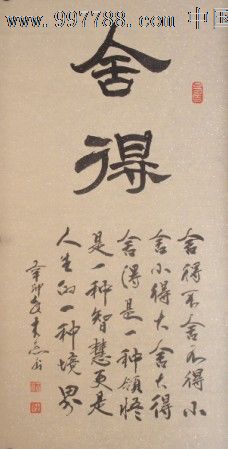 www.997788.com 中国
舍得
舍得不舍不得小
舍小得大舍大得
舍得是一种领悟
是一种智慧更是
人生的一种境界
辛卯